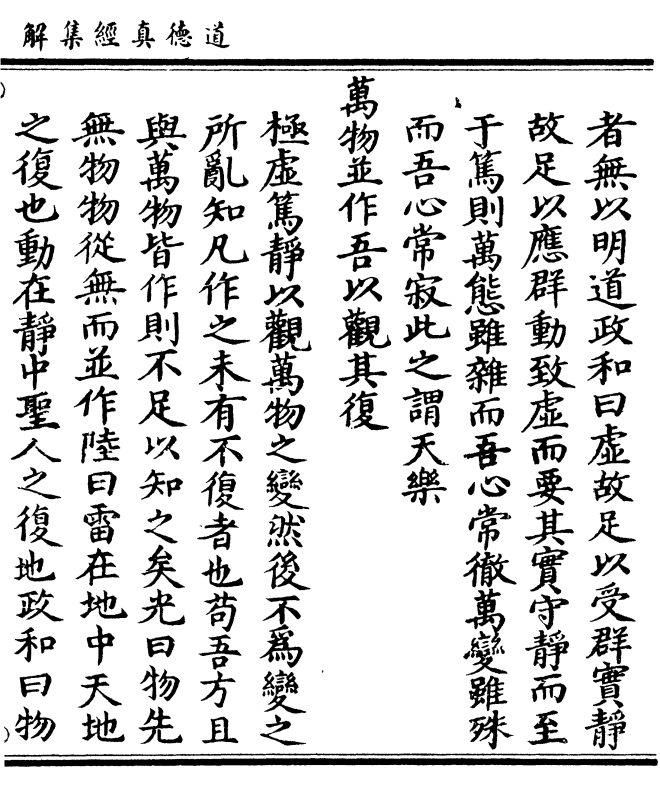 道德真經集解
者無以明道政和曰虛故足以受群實靜
故足以應群動致虛而要其實守靜而至
于篤則萬態雖雜而吾心常徹萬變雖殊
而吾心常寂此之謂天樂
萬物並作吾以觀其復
極虛篤靜以觀萬物之變然後不為變之
所亂知凡作之未有不復者也苟吾方且
與萬物皆作則不足以知之矣光曰物先
無物物從無而並作陸曰雷在地中天地
之復也動在靜中聖人之復地政和曰物